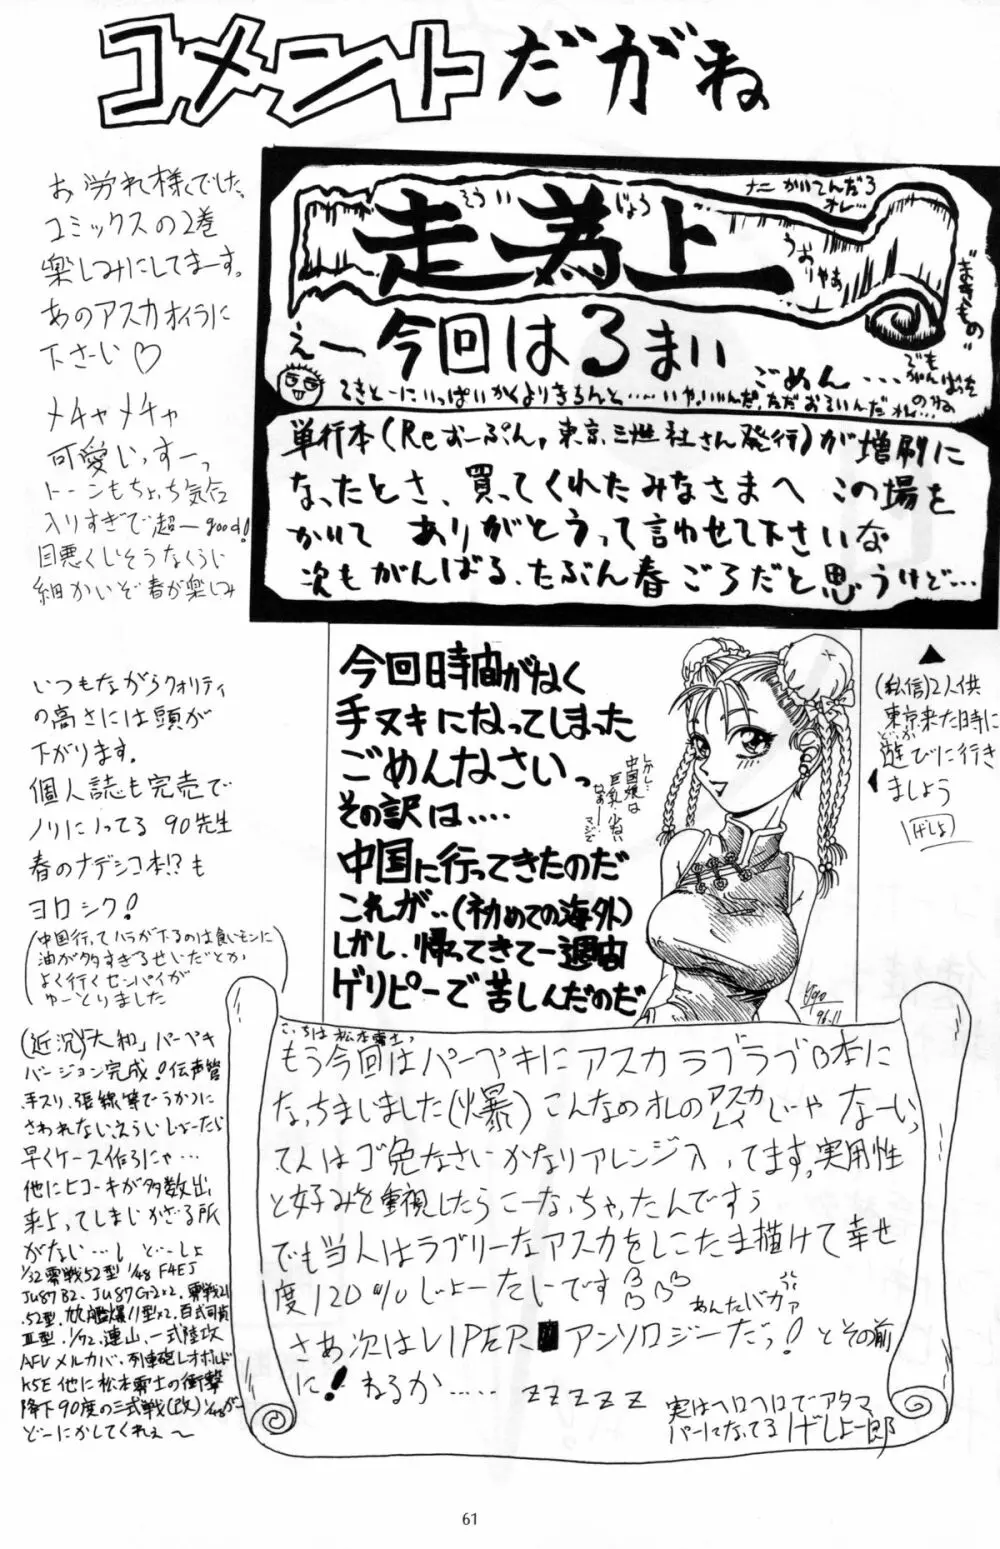 コメントだがね
お労れ様でした、
コミックスの2巻
楽しみにしてまーす。
あのアスカオイラに
下さーい♡
メチャメチャ
可愛いっすーっ
トーンもちょっち気合
入りすぎで超ーgood!
目悪くしそうなくらい
細かいぞ春が楽しみ
走為上
そう
じょう
ナニかいてんだろ
オレ…
うおりゃあ
"まきもの"
えー今回はるまい
ごめん…
でも
がんばった
のね
単行本(Reずーぷん,東京三世社さん発行)が増刷に
なったとさ、買ってくれたみなさまへ この場を
かりて ありがとうって言わせて下さいな
次もがんばる、たぶん春ごろだと思うけど…
今回時間がなく
手ヌキになってしまった
ごめんなさいっ
その訳は‥‥
中国に行ってきたのだ
これが‥(初めての海外)
しかし、帰ってきて一週間
ゲリピーで苦しんだのだ
しかし…
中国娘は
巨乳少ない
なぁー…
マジで
(私信)2人供
東京来た時に
どっか
遊びに行き
ましょう
げしょ
いつもながらクォリティ
の高さには頭が
下がります。
個人誌も完売で
ノリにノってる 90先生
春のナデシコ本!?も
ヨロシク!
(中国行ってハラが下るのは食いモンに
油が多すぎるせいだとか
よく行くセンパイが
ゆーとりました)
(近況)「大和」パーペキ
バージョン完成!伝声管
、手スリ、張線等でうかつに
さわれないえらいしょーたい
早くケース作ろにゃ…
他にヒコーキが多数出
来上ってしまいかざる所
がない…し どーしよ
1/32零戦52型 1/48 F4EJ
JU87B2、JU87G2×2、零戦21
.52型、彗艦爆11型×2、百式司偵
Ⅲ型、1/72、連山、一式陸攻
AFVメルカバ、列車砲レオポルド
K5E他に松本零士の衝撃
降下90度の三式戦(改)1/48がー
どーにかしてくれぇ〜
こ、ちは松本零士。
もう今回はパーペキにアスカラブラブB本に
な、ちまいました(爆)こんなのオレのアスカ
じゃ なーいっ
レイ
て人はゴ免なさいかなりアレンジ入ってます。実用性
と好みを重視したらこーな、ちゃったんですぅ
でも当人はラブリーなアスカをしこたま描けて幸せ
度120%じょーたいです
あんたバカァ
さあ次はVIPERアンソロジーだっ!とその前
に!ねるか…… ZZZZZ
実はヘロヘロでアタマ
パーになってる げしょ一郎
61